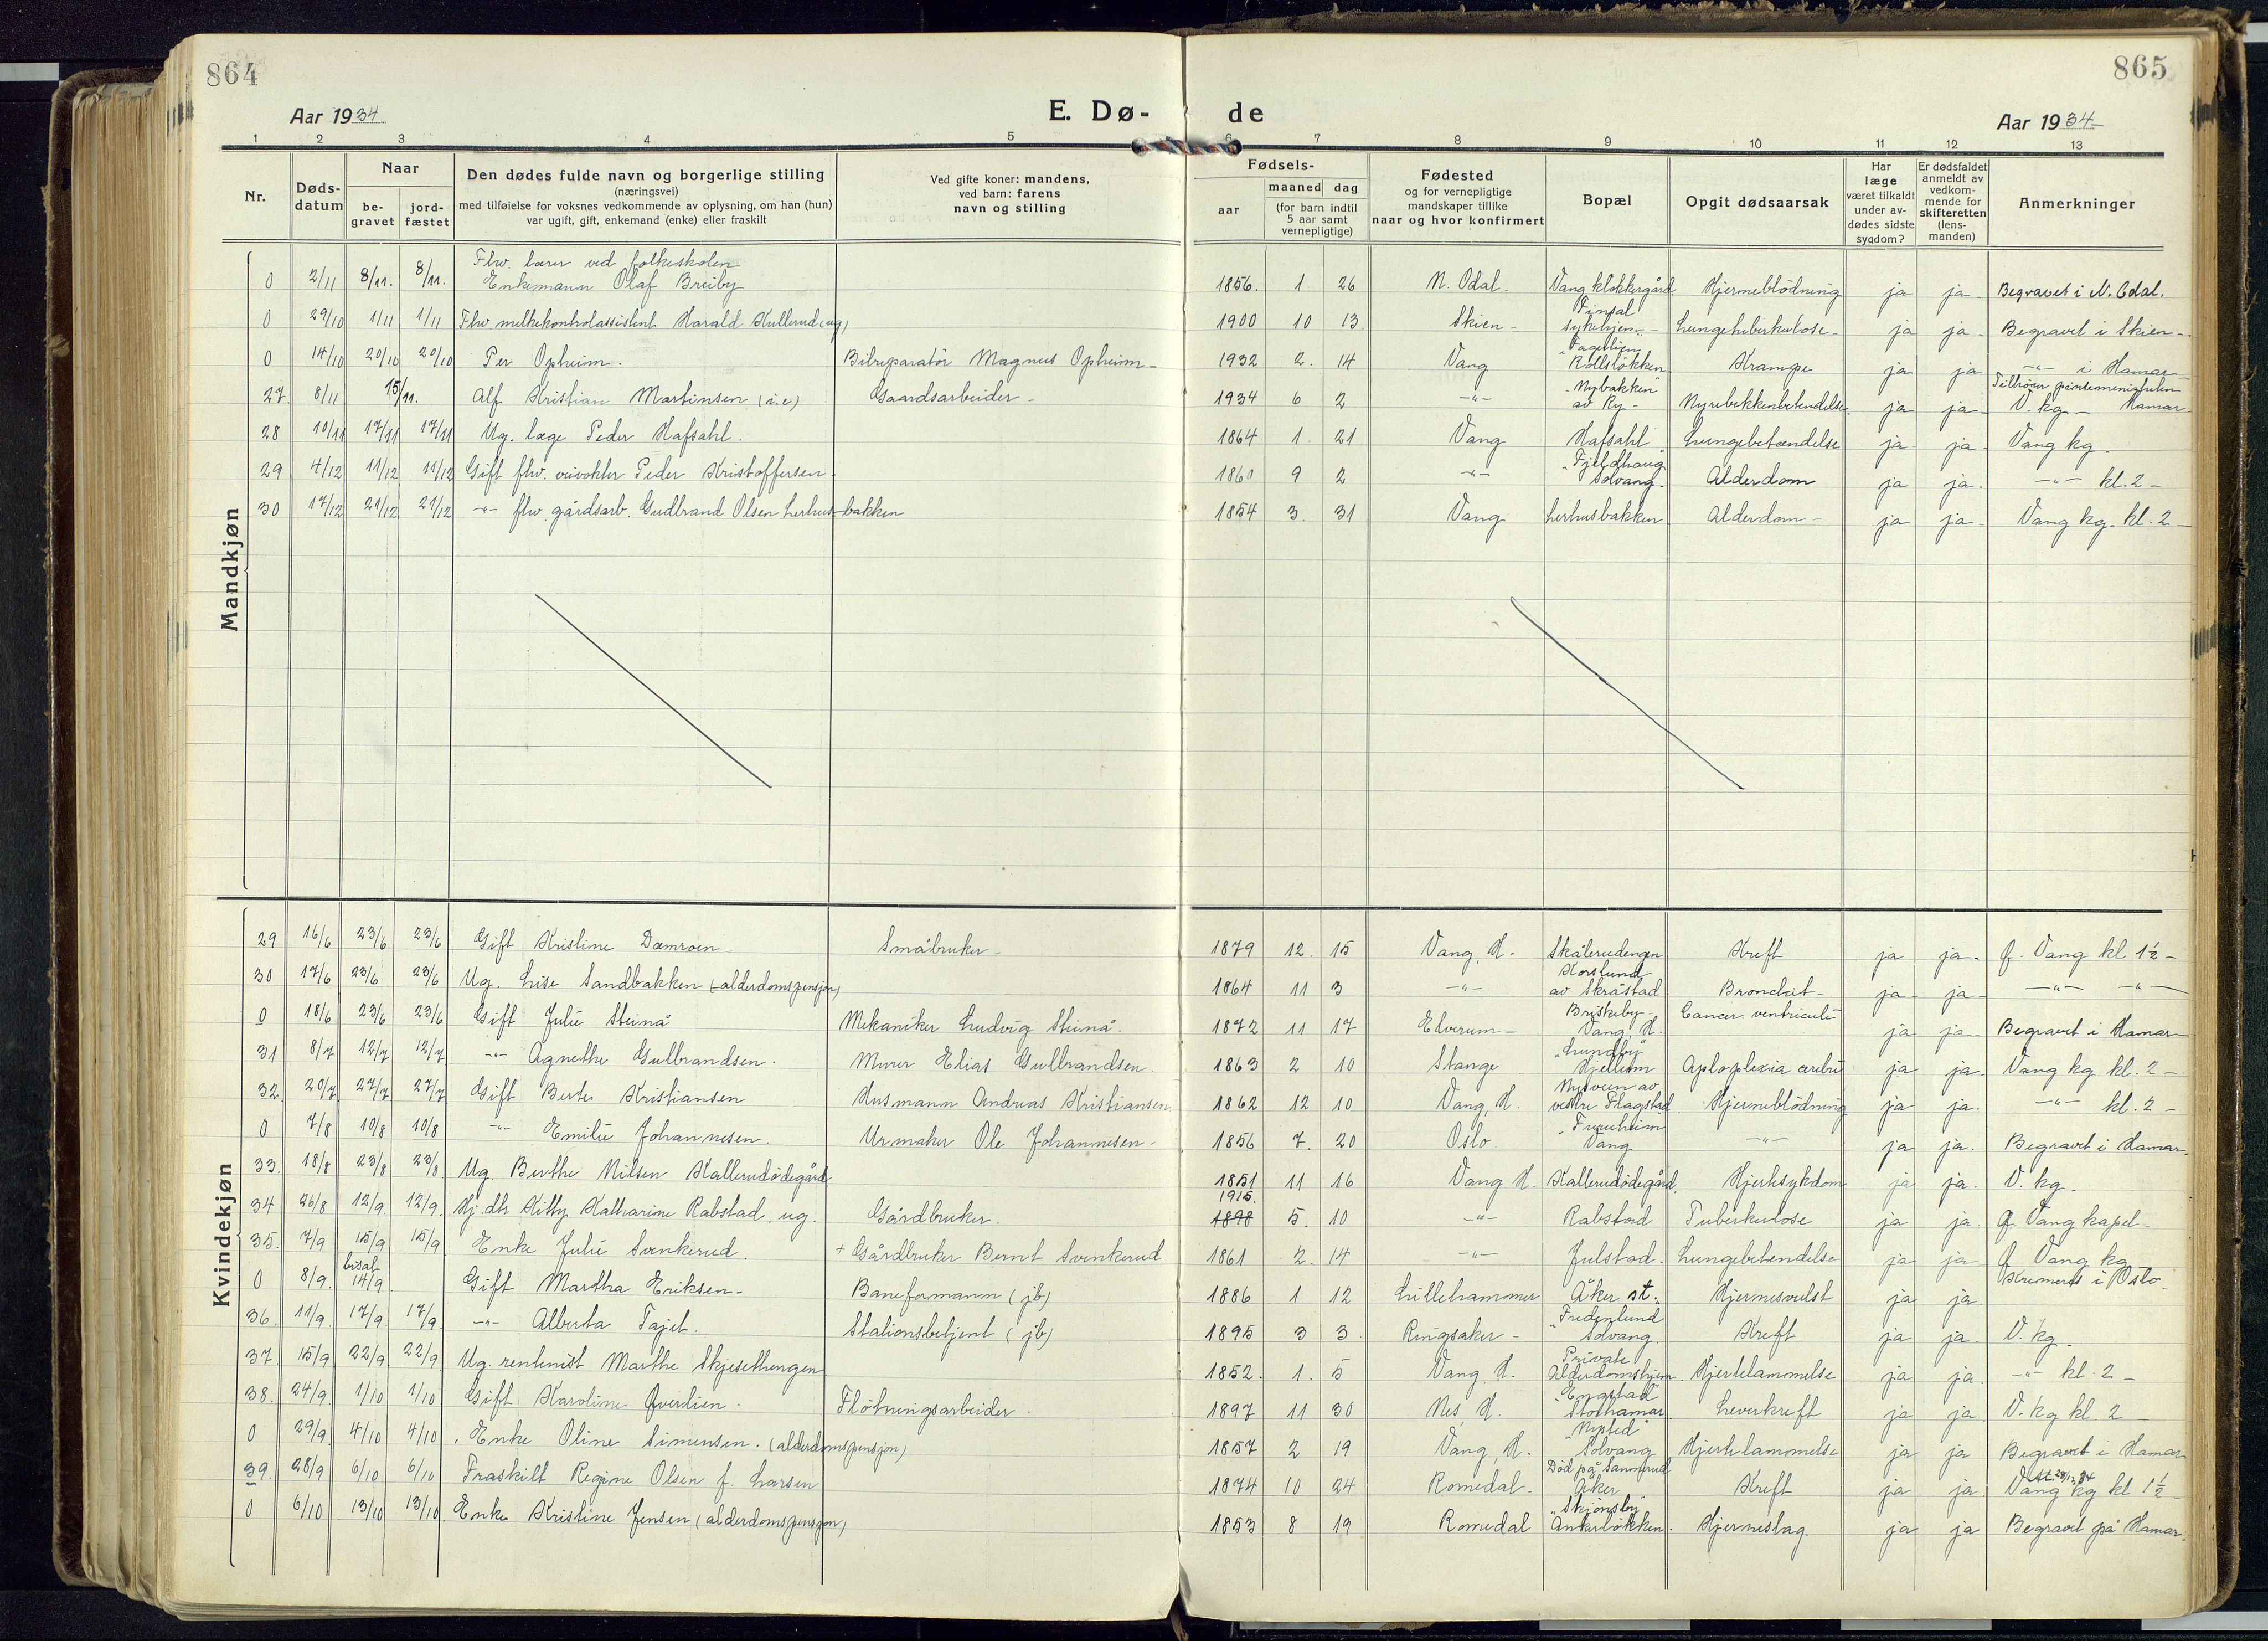 864
865
Aar 1934
E. Dø-
de
Aar 1934
1 2 3 4 5 6 7 8 9 10 11 12 13
Nr.
Døds-
datum
Naar
be-
gravet
jord-
fæstet
Den dødes fulde navn og borgerlige stilling
(næringsvei)
med tilføielse for voksnes vedkommende av oplysning, om han (hun)
var ugift, gift, enkemand (enke) eller fraskilt
Ved gifte koner: mandens,
ved barn: farens
navn og stilling
Fødsels-
aar
maaned dag
(for barn indtil
5 aar samt
vernepligtige)
Fødested
og for vernepligtige
mandskaper tillike
naar og hvor konfirmert
Bopæl
Opgit dødsaarsak
Har
læge
været tilkaldt
under av-
dødes sidste
sygdom?
Er dødsfaldet
anmeldt av
vedkom-
mende for
skifteretten
(lens-
manden)
Anmerkninger
Mandkjøn
Fhv. lærer ved folkeskolen
0 2/11 8/11. 8/11. Enkemann Olaf Breiby 1856. 1 26 N. Odal. Vang klokkergård Hjerneblödning ja ja Begravet i N. Odal.
Finsal
0 29/10 1/11 1/11 Fhv melkekontrolassistent Harald Kullerud (ug) 1900 10 13. Skien - sykehjem - Lungetuberkulose - ja ja Begravet i Skien -
"Fagerlijen
0 14/10 20/10 20/10 Per Opheim. Bilreparatör Magnus Opheim - 1932 2. 14 Vang Kollslökken Krampe ja ja -"- i Hamar
"Nybakken" Tilhörer pinsemenigheten
27. 8/11 15/11. Alf Kristian Martinsen (i.e) Gaardsarbeider - 1934 6 2 -"- av Ry - Nyrebekkenbetendelse ja ja V. kg - Hamar
28 10/11 17/11 17/11 Ug. læge Peder Hafsahl. 1864 1. 21 Vang Hafsahl Lungebetændelse ja ja Vang kg.
"Fjeldhaug
29 4/12 11/12 11/12 Gift fhv. veivokter Peder Kristoffersen. 1860 9 2 -"- Solvang. Alderdom ja ja. -"- kl. 2 -
30 17/12 21/12 21/12 -"- fhv. gårdsarb. Gudbrand Olsen Lerhusbakken 1854 3. 31 Vang Lerhusbakken Alderdom - ja ja Vang kg. kl. 2 -
Kvindekjøn
29 16/6 23/6 23/6 Gift Kristine Damroen - Småbruker - 1879 12. 15 Vang, H. Skålerudengen Kreft ja ja. f. Vang kl 1½ -
Korslund
30 17/6 23/6 23/6 Ug. Lise Sandbakken (alderdomspensjon) 1864 11 3 -"- av Skråstad Bronchit - ja ja -"- -"-
Briskeby - Cancer ventriculi
0 18/6 23/6 23/6 Gift Julie Steinå Mekaniker Ludvig Steinå. 1872 11 17 Elverum - Vang H. ja ja Begravet i Hamar -
"Lundby"
31 8/7 12/7 12/7 -"- Agnethe Gulbrandsen. Murer Elias Gulbrandsen. 1863 2 10 Stange Hjellum Aploplexia cerebri ja ja. Vang kg. kl. 2 -
Nysveen av
32. 20/7 27/7 27/7 Gift Berte Kristiansen Husmann Andreas Kristiansen. 1862 12 10 Vang, H. vestre Flagstad Hjerneblödning ja ja. -"- kl. 2 -
"Furuheim
0 7/8 10/8 10/8 -"- Emilie Johannesen. Urmaker Ole Johannesen - 1856 7. 20 Oslo Vang -"- ja ja. Begravet i Hamar.
33. 18/8 23/8 23/8 Ug. Berthe Nilsen Kallerudödegård 1851 11 16 Vang H. Kallerudödegård. Hjertesykdom ja ja. V. kg.
1915.
34 26/8 12/9 12/9. Hj. dtr Kitty Katharine Rabstad. ug. Gårdbruker. 1898 5. 10 -"- Rabstad Tuberkulose ja ja. f. Vang kapel -
35. 7/9 15/9 15/9 Enke Julie Svenkerud. + Gårdbruker Bernt Svenkerud 1861 2. 14 -"- Julstad. Lungebetendelse ja ja f Vang kg
bisat Kremert i Oslo
0 8/9. 14/9 Gift Martha Eriksen - Baneformann (jb) 1886 1 12 Lillehammer Åker st. Hjernesvulst ja ja
"Fredenlund
36. 11/9. 17/9 17/9 -"- Alberta Tajet. Stationsbetjent (jb) 1895 3 3. Ringsaker - Solvang. Kreft ja ja. V. kg.
Private
37. 15/9 22/9 22/9 Ug. rentenist Marthe Skjesethengen 1852. 1. 5 Vang, H. Alderdomshjem. Hjertelammelse ja ja. -"- kl. 2 -
"Engstad"
38. 24/9. 1/10 1/10 Gift Karoline Qverlien. Flötningsarbeider. 1897 11 30 Nes, H. Storhamar. Leverkreft ja ja. V. kg kl. 2 -
"Nysted"
0 29/9. 4/10 4/10 Enke Oline Simensen. (alderdomspensjon) 1857 2 19 Vang, H. Solvang Hjertelammelse ja ja Begravet i Hamar
Död på Sannerud
39. 28/9 6/10 6/10 Fraskilt Regine Olsen f. Larsen 1874 10 24 Romedal - Åker Kreft ja ja Vang kg kl 1½ -
"Skjönsby"
0 6/10 13/10 13/10 Enke Kristine Jensen (alderdomspensjon) 1853 8 19 Romedal Ankerlökken. Hjerneslag. ja ja Begravet på Hamar.